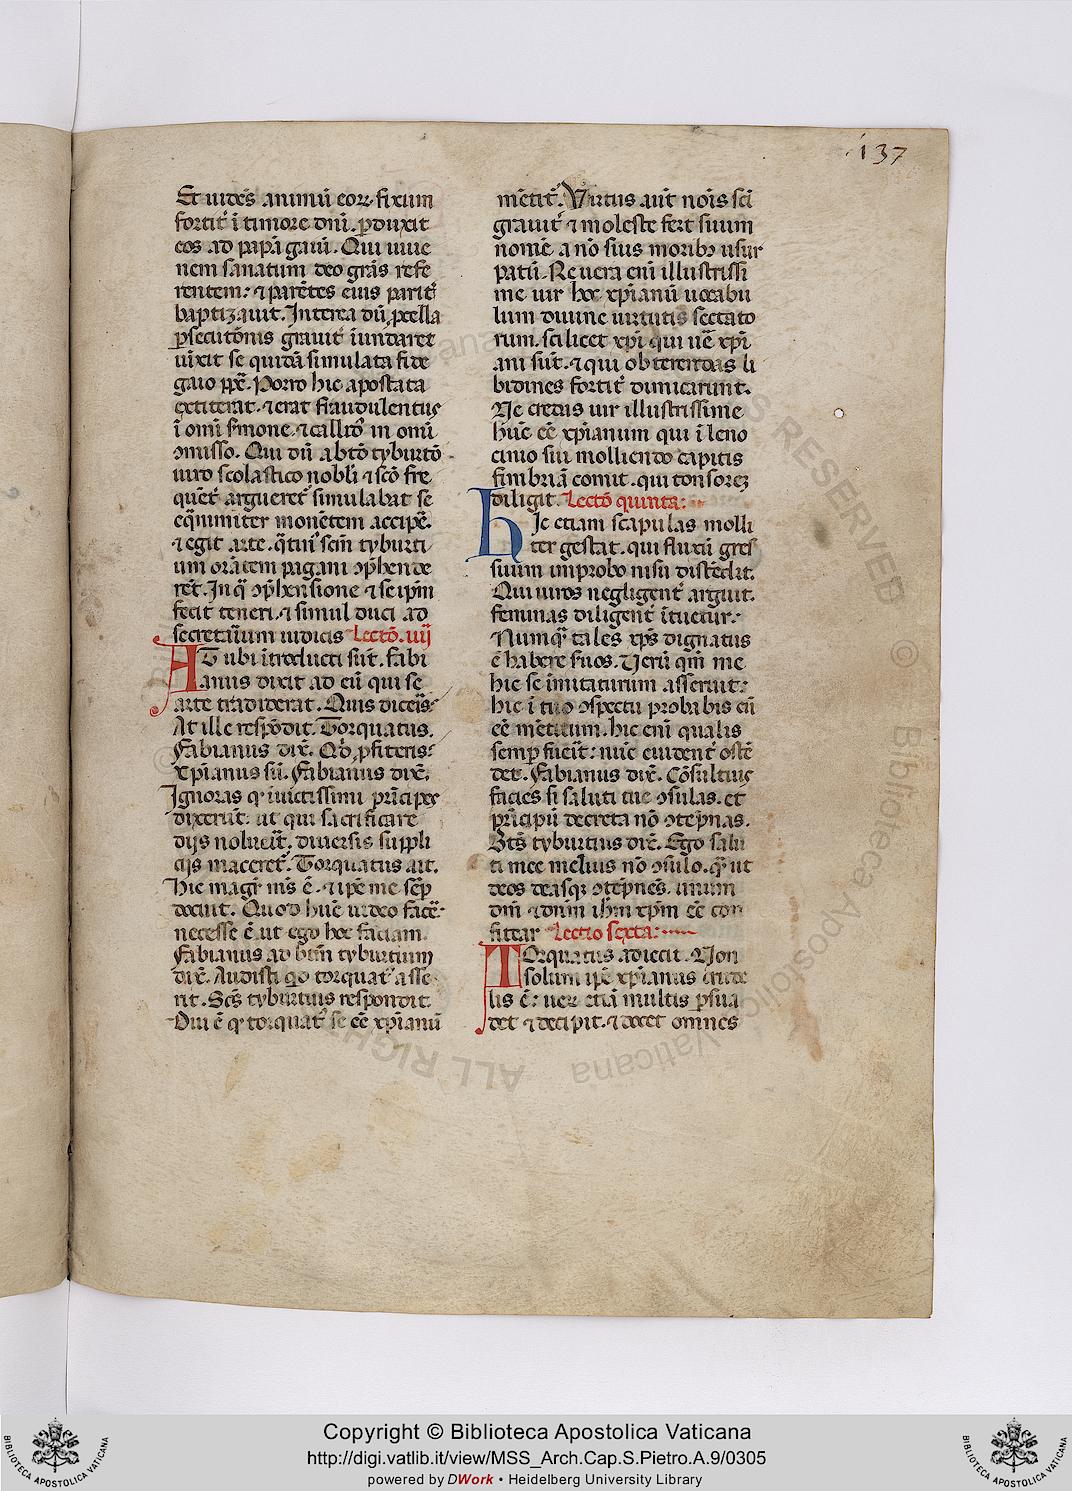 ·137
Et uidẽs animũ eoꝝ fixum
fortit᷑ ĩ timore dñi. ꝑduxit
eos ad papã gaiũ. Qui iuue
nem sanatum deo grãs refe
rentem: ⁊ parẽtes eius parit᷑
baptizauit. Interea dũ ꝓcella
ꝑsecutõnis grauit᷑ iundaret
uixit se quidã simulata fide
gaio ꝑꝑ̃. Porro hic apostata
extiterat. ⁊ erat fraudulentus
ĩ omĩ ẜmone. ⁊ callid᷒ in omĩ
ꝯmisso. Qui dũ a btõ tyburtõ
uiro scolastico nobli ⁊ scõ fre
quẽt᷑ argueret᷑ simulabat se
eq̃nimiter monẽtem accipẽ.
⁊ egit arte. q̃tin᷒ scm̃ tyburti
um orãtem pagani ꝯp̃hende
rẽt. In q̃ ꝯp̃hensione ⁊ se ip̃m
fecit teneri. ⁊ simul duci ad
secretariũum iudicis Lectõ. iiij
AT ubi ĩtroducti sũt. fabi
anus dixit ad eũ qui se
arte tradiderat. Quis diceris:
At ille respõdit. Torquatus.
Fabianus dix̃. Qd̾ ꝓfiteris:
Xp̃ianus sũ. Fabianus dix̃.
Ignoras ꝙ iuictissimi prĩcipes
dixerũt: ut qui sacrificare
dijs noluerĩt. diuersis suppli
cijs maceret᷑. Torquatus ait.
Hic magr̃ m̃s ẽ. ⁊ ip̃e me semꝑ
docuit. Quod hũc uideo facẽ.
necesse ẽ ut ego hoc faciam.
Fabianus ad btm̃ tyburtium
dix̃. Audisti qd̾ torquat᷒ asse
rit. Scs̃ tyburtius respondit.
Diu ẽ ꝙ torquat᷒ se eẽ xp̃ianũ
mẽtit᷑. Virtus aũt nois sci
grauit᷑ ⁊ moleste fert suum
nomẽ a nõ suis morib᷒ usur
patũ. Re uera eni illustrissi
me uir hoc xp̃ianũ uocabu
lum diuine uirtutis sectato
rum. scilicet xp̃i qui ue᷑ xp̃i
ani sũt. ⁊ qui obterendas li
bidines fortit᷑ dimicarunt.
Ne credas uir illustrissime
hũc eẽ xp̃ianum qui ĩ leno
cinio sui molliendo capitis
fimbriã comit. qui tonsores
diligit. Lectõ quinta:
HIc etiam scapulas molli
ter gestat. qui fluxũ gres
suum improbo nisu distẽdit.
Qui uiros negligent᷑ arguit.
feminas diligent᷑ ĩtuetur:
Numq̃ tales xp̃s dignatus
ẽ habere suos. Uerũ qm̃ me
hic se imitaturum asseruit:
hic ĩ tuo ꝯspectu probabis eũ
eẽ mẽtitum. hic eni qualis
semꝑ fuerĩt: nũc euident᷑ ostẽ
det. Fabianus dix̃. Cõsultius
facies si saluti tue ꝯsulas. et
prĩcipũ decreta nõ ꝯtẽpnas.
Bt᷒s tyburtius dix̃. Ego salu
ti mee melius nõ ꝯsulo. q̃ ut
deos deasqꝫ ꝯtẽpnẽs. unum
dm̃ ⁊ dnm̃ ihm̃ xp̃m eẽ con
fitear Lectio sexta:
TOrquatus adiecit. Non
solum ip̃e xp̃ianus crude
lis ẽ: uerũ etiã multis ꝑsua
det ⁊ decipit. ⁊ docet omnes
Copyright © Biblioteca Apostolica Vaticana
http://digi.vatlib.it/view/MSS_Arch.Cap.S.Pietro.A.9/0305
powered by DWork • Heidelberg University Library